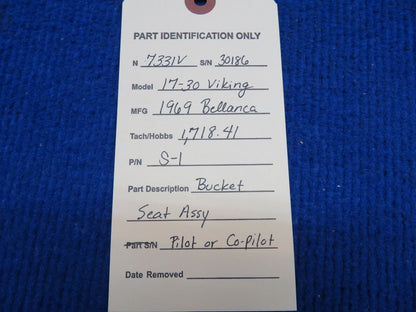 PART IDENTIFICATION ONLY
N 7331V S/N 30186
Model 17-30 Viking
MFG 1969 Bellanca
Tach/Hobbs 1,718.41
P/N S-1
Part Description Bucket
Seat Assy
Part S/N Pilot or Co-pilot
Date Removed